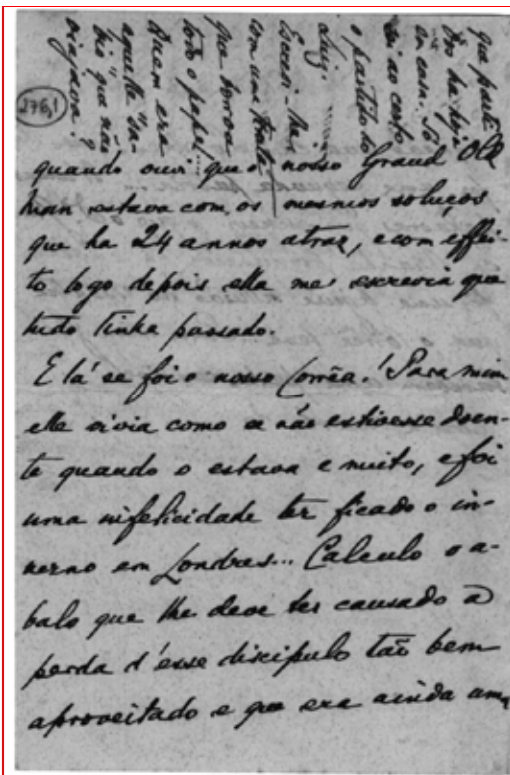 que parti-
ha hoje
em casa. Só
sei ao certo
o partido do
Luiz.
com uma tinta
que borrou
todo o papel...
Quem era
aquelle "sa-
bio" que não
viajava?
276,1
quando ouvi que o nosso Grand Old
Man estava com os mesmos soluços
que ha 24 annos atraz, e com effei-
to logo depois ella me escrevia que
tudo tinha passado.
E lá se foi o nosso Corrêa! Para mim
elle vivia como se não estivesse doen-
te quando o estava e muito, e foi
uma infelicidade ter ficado o in-
verno em Londres... Calculo o a-
balo que lhe deve ter causado a
perda d'esse discipulo tão bem
aproveitado e que era ainda um